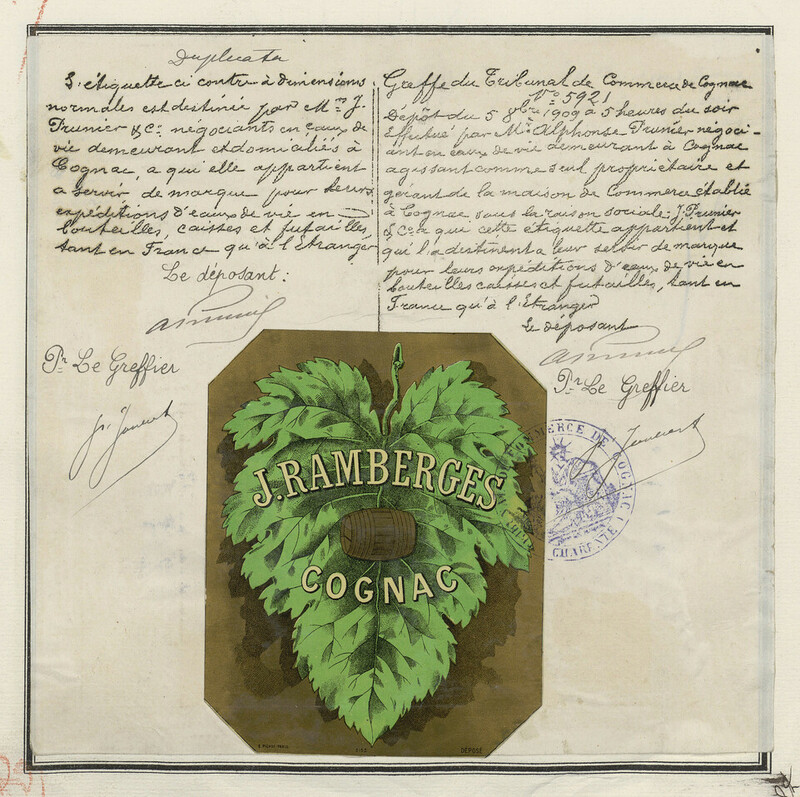 Duplicata
L'étiquette ci contre à dimensions
normales est destinée par Mrs J.
Prunier & Co négociants en eaux de
vie demeurant et domiciliés à
Cognac, a qui elle appartient
a servir de marque pour leurs
expéditions d'eaux de vie en
bouteilles, caisses et futailles,
tant en France qu'à l'Etranger
Le déposant :
Pr Le Greffier
Greffe du Tribunal de Commerce de Cognac
No 5921
Dépôt du 5 8bre 1909 à 5 heures du soir
Effectué par Mr Alphonse Prunier négoci-
ant en eaux de vie demeurant à Cognac
agissant comme seul propriétaire et
gérant de la maison de Commerce établie
à Cognac sous la raison sociale: J. Prunier
& Co a qui cette étiquette appartient et
qui l'a destinent a leur servir de marque
pour leurs expéditions d'eaux de vie en
bouteilles caisses et futailles, tant en
France qu'à l'Etranger
Le déposant
Pr Le Greffier
J. RAMBERGES
COGNAC
DÉPOSÉ
COMMERCE DE COGNAC
CHARENTE